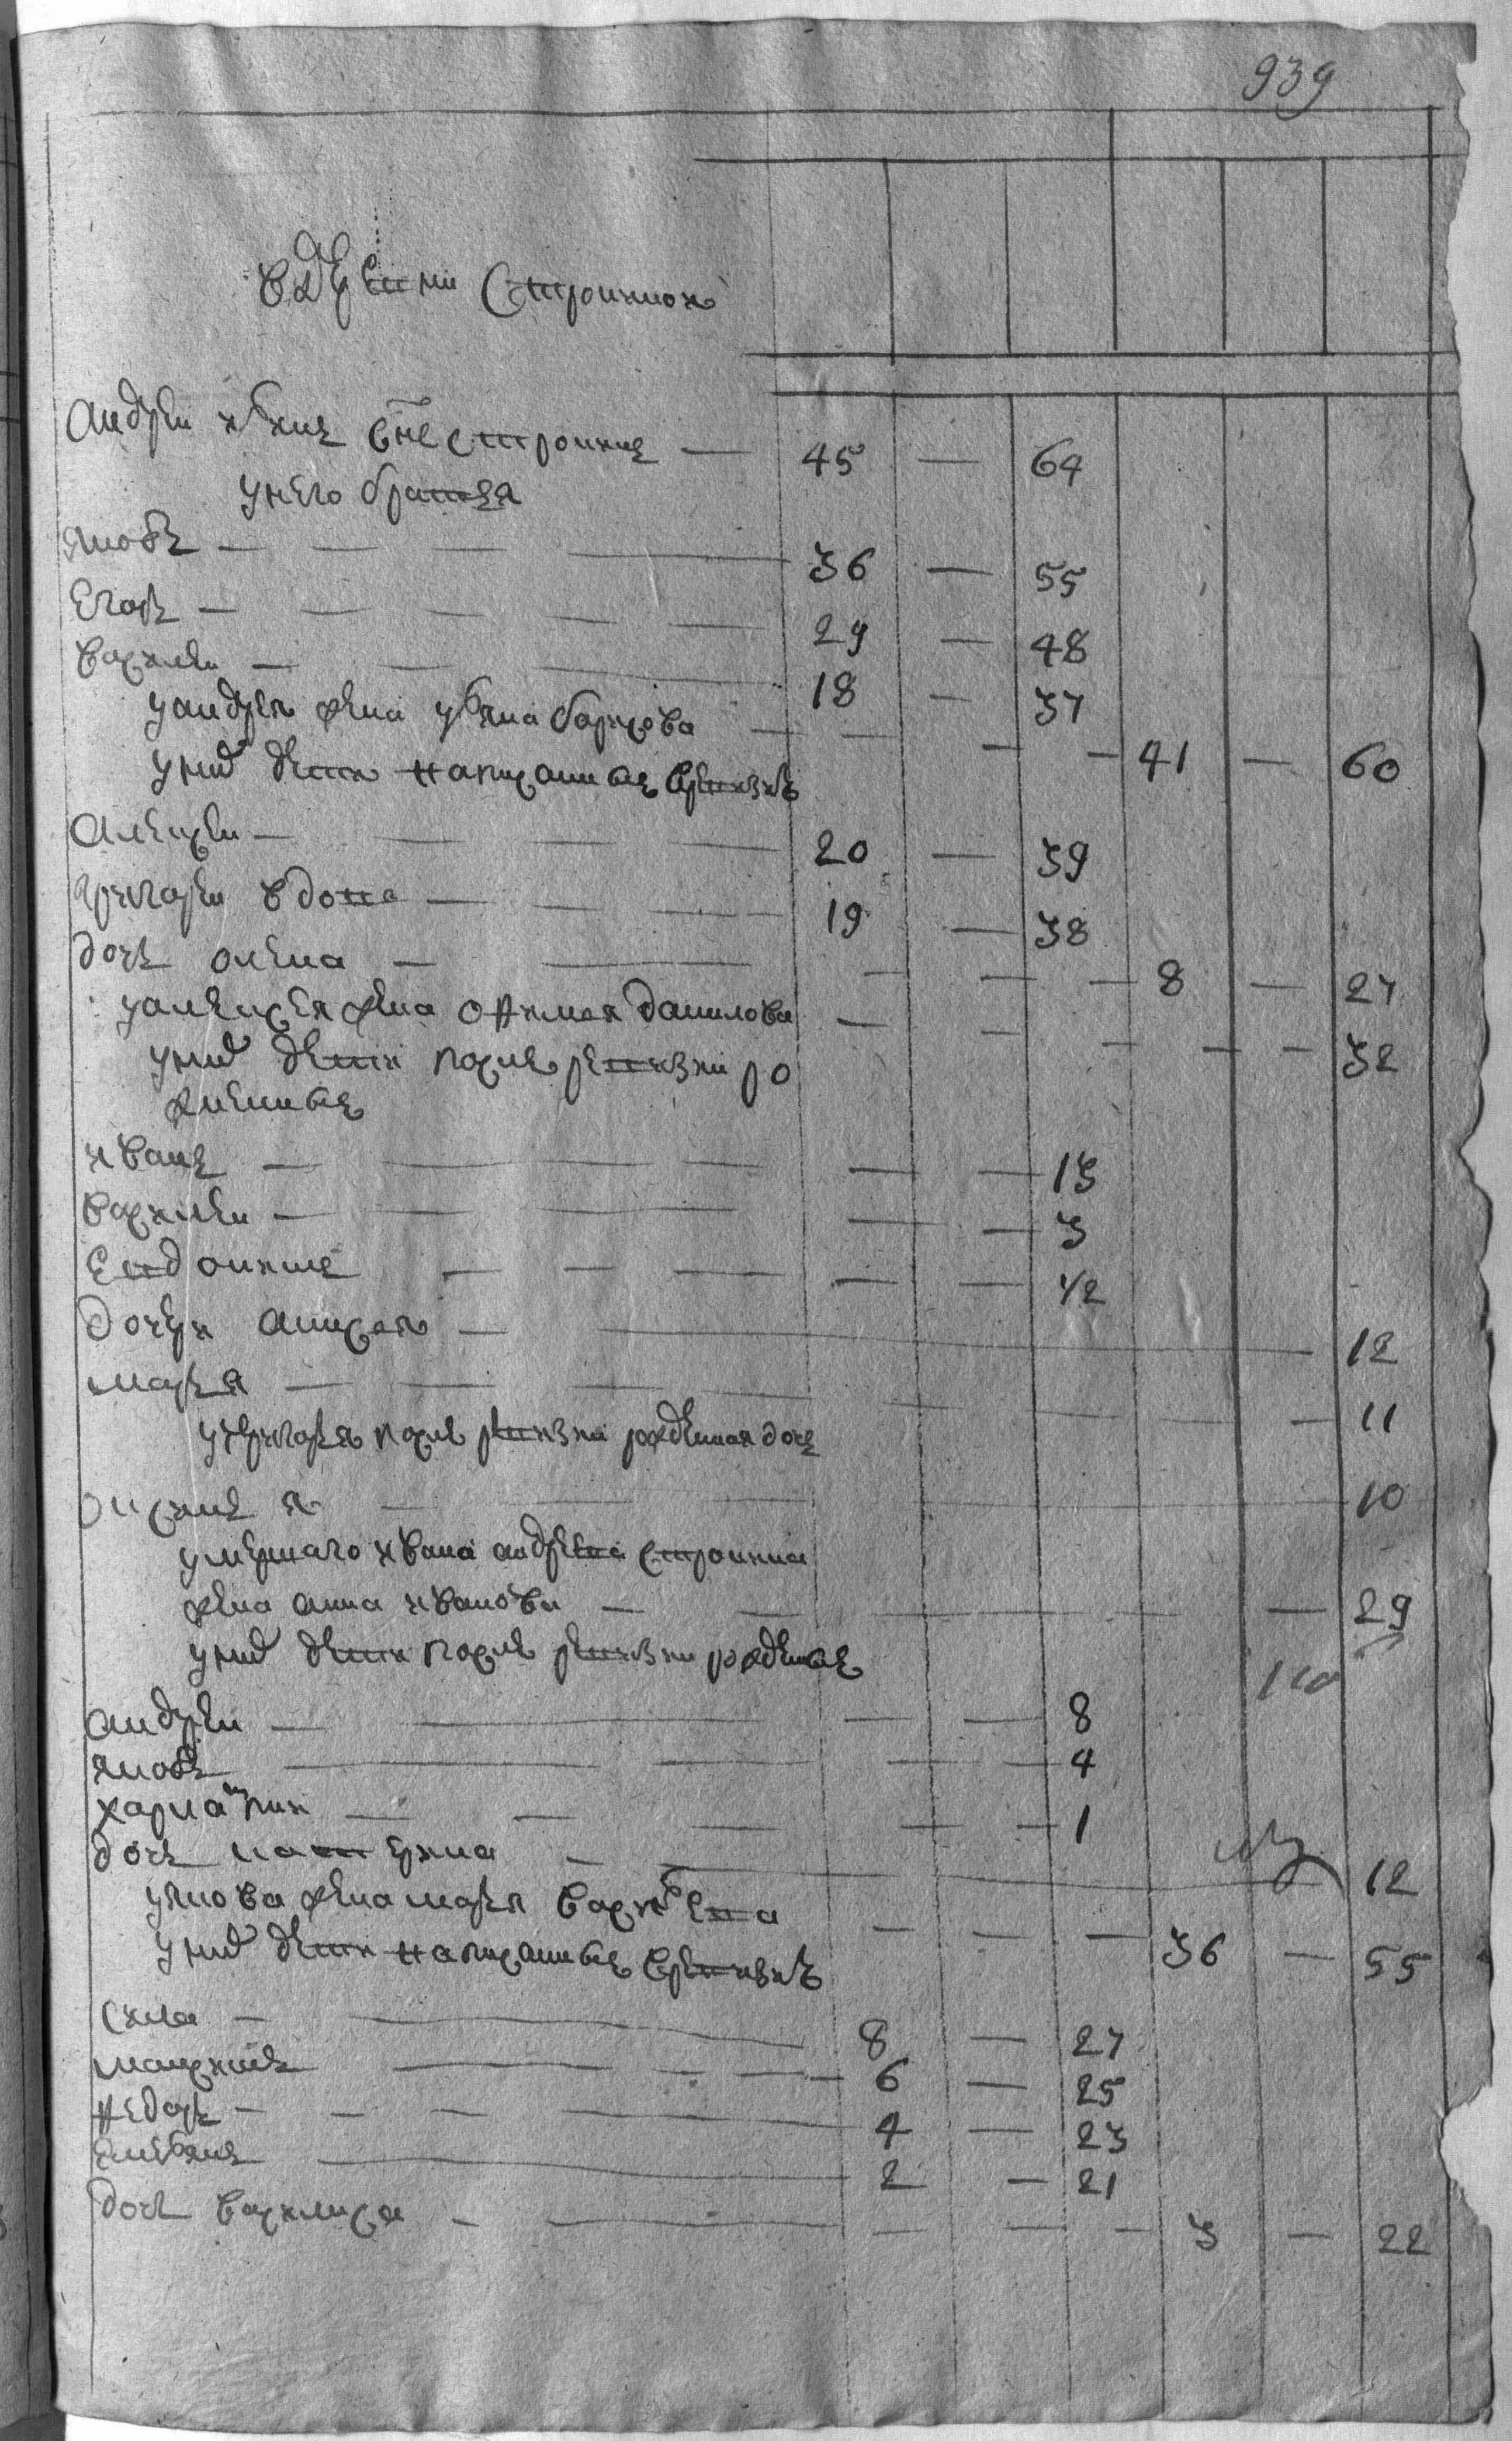 939
в деревни Строкиной
Андрей Иванъ снъ Строкинъ — 45 — 64
у него братья
Яковъ — 36 — 55
Егоръ — 29 — 48
Василей — 18 — 37
у андрея жена ульяна борисова — 41 — 60
у нихъ дети написанныя в ревизіи
Алексей — 20 — 39
григорей — 19 — 38
дочь олена — 8 — 27
у алексея жена офимья данилова — 32
у нихъ дети после ревизии ро
жденныя
иванъ — 13
Василей — 3
Евдокимъ — 1/2
дочери анисья — 12
марья — 11
у григорья после ревизии рожденная дочь
— 10
умершаго ивана андреева строкина
жена анна иванова — 29
у нихъ дети после ревизии рожденныя
андрей — 8
яковъ — 4
харлампии — 1
дочь катерина — 12
у якова жена марья васильева — 36 — 55
у нихъ дети написанныя в ревизіи
сила — 8 — 27
максимъ — 6 — 25
федоръ — 4 — 23
емельянъ — 2 — 21
дочь василиса — 3 — 22